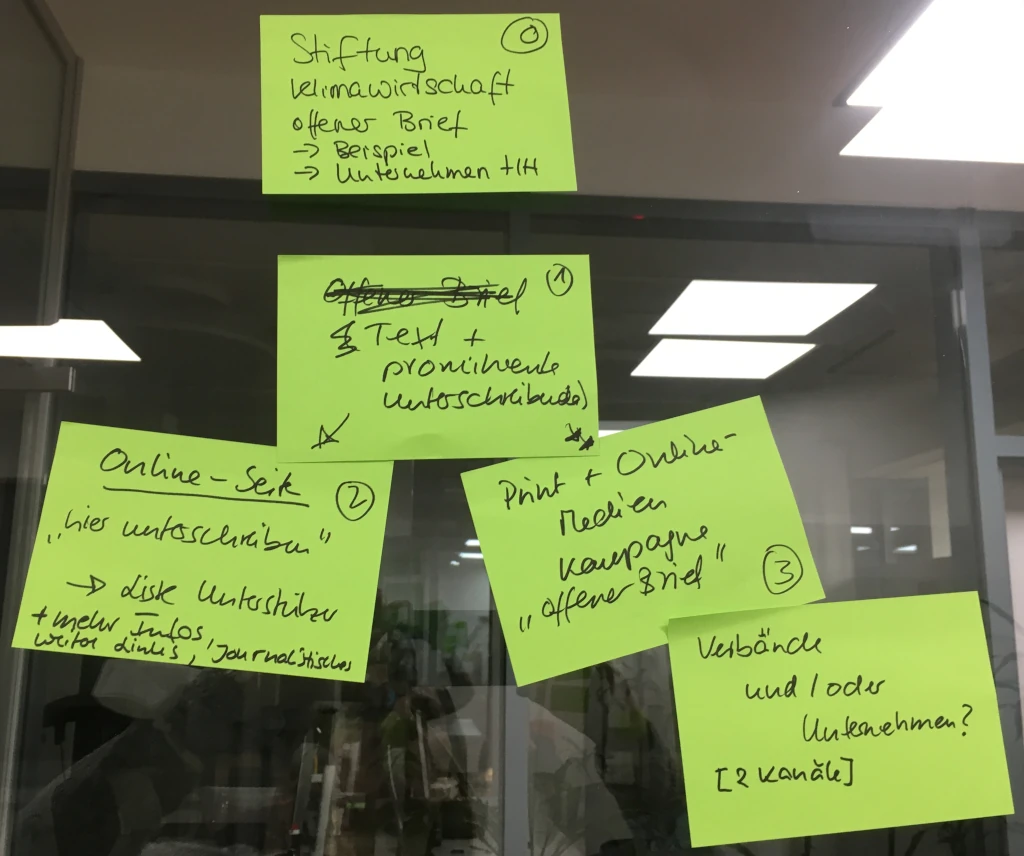 0
Stiftung
Klimawirtschaft
offener Brief
→ Beispiel
→ Unternehmen + IH
1
Offener Brief
Text +
prominente
Unterschreibende)
Online-Seite
2
„hier unterschreiben"
→ Liste Unterstützer
+ mehr Infos,
weitere Links, Journalistisches
Print + Online-
Medien
Kampagne
„offener Brief"
3
Verbände
und / oder
Unternehmen?
[2 Kanäle]